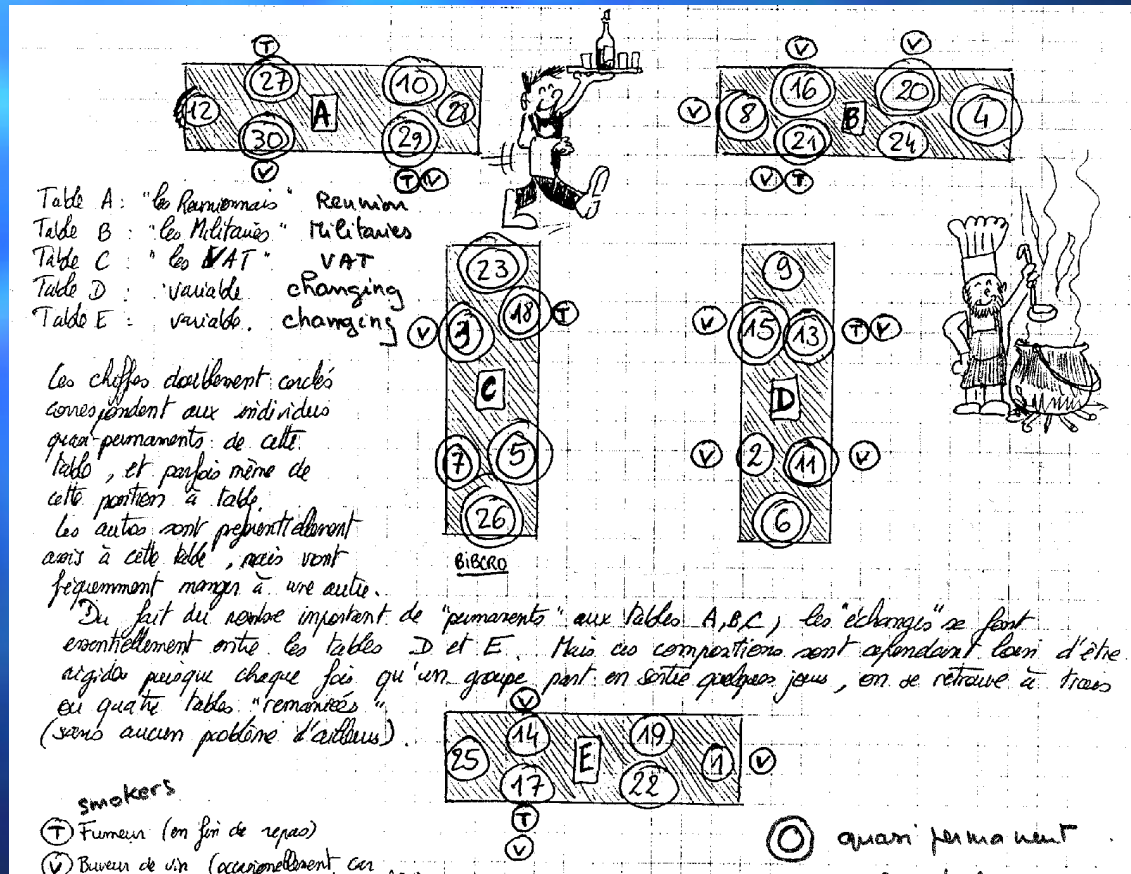 T
27 10
12 A 28
30 29
V T V
V V
16 20
V 8 B 4
21 24
V T
Table A : "les Reunionnais" Reunion
Table B : "les Militaires" Militaries
Table C : "les VAT" VAT
Table D : variable changing
Table E : variable. changing
23
18 T
V 3
C
7 5
26
BIBCRO
9
V 15 13 T V
D
V 2 11 V
6
Les chiffres doublement cerclés
correspondent aux individus
quasi-permanents de cette
table, et parfois même de
cette position à table.
Les autres sont préférentiellement
assis à cette table, mais vont
fréquemment manger à une autre.
Du fait du nombre important de "permanents" aux tables A, B, C, les "échanges" se font
essentiellement entre les tables D et E. Mais ces compositions sont cependant loin d'être
rigides puisque chaque fois qu'un groupe part en sortie quelques jours, on se retrouve à trois
ou quatre tables "remaniées"
(sans aucun problème d'ailleurs).
V
14 19
25 E 1 V
17 22
T
V
smokers
T Fumeur (en fin de repas)
V Buveur de vin (occasionnellement, car
O quasi permanent